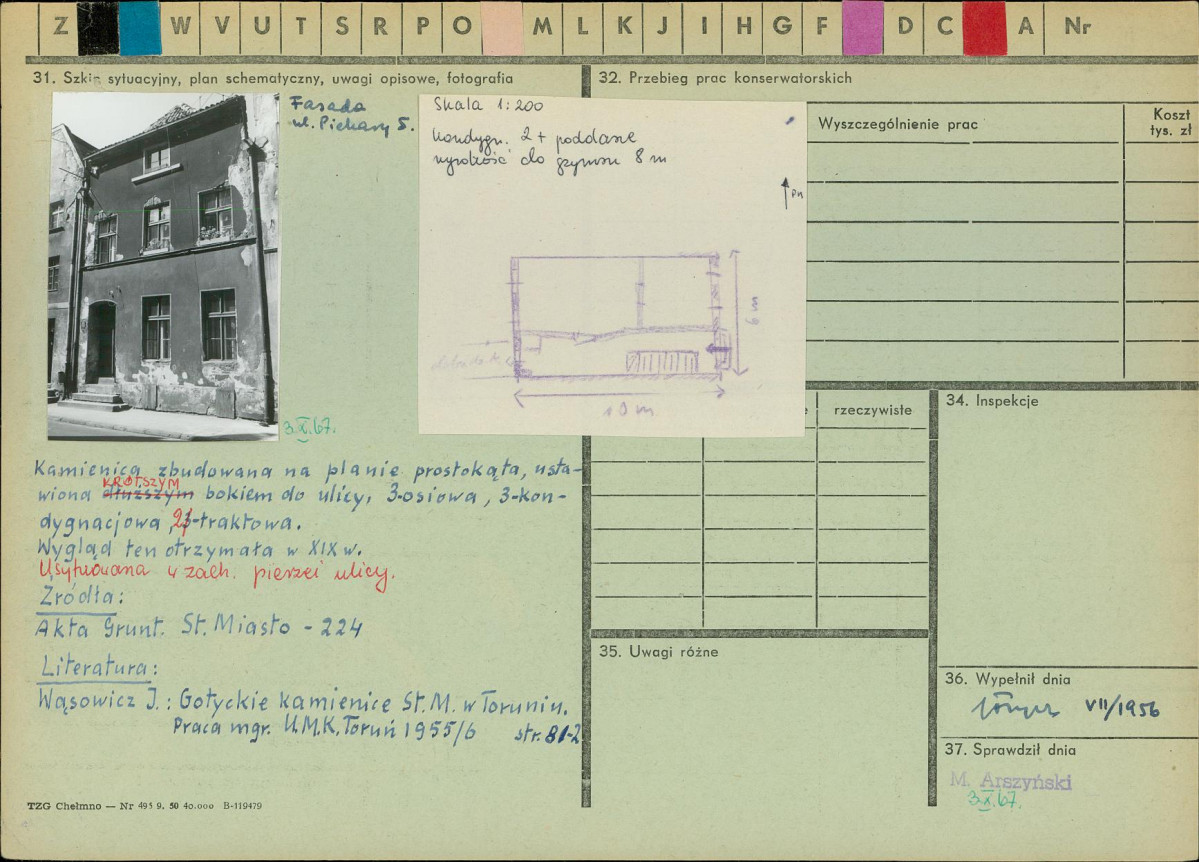 Z W V U T S R P O M L K J I H G F D C A Nr
31. Szkic sytuacyjny, plan schematyczny, uwagi opisowe, fotografia
Fasada
ul. Piekary 5.
3.X.67.
Skala 1:200
kondygn. 2 + poddasze
wysokość do gzymsu 8 m
pn
6 m
10 m
Kamienica zbudowana na planie prostokąta, usta-
wiona dłuższym KRÓTSZYM bokiem do ulicy, 3-osiowa, 3-kon-
dygnacjowa, 2-traktowa.
Wygląd ten otrzymała w XIX w.
Usytuowana w zach. pierzei ulicy.
Źródła:
Akta Grunt. St. Miasto - 224
Literatura:
Wąsowicz J.: Gotyckie kamienice St. M. w Toruniu.
Praca mgr. U.M.K. Toruń 1955/6 str. 81-2
TZG Chełmno — Nr 495 9. 50 40.000 B-119479
32. Przebieg prac konserwatorskich
Wyszczególnienie prac
Koszt
tys. zł
rzeczywiste
34. Inspekcje
35. Uwagi różne
36. Wypełnił dnia
VII/1956
37. Sprawdził dnia
M. Arszyński
3.X.67.